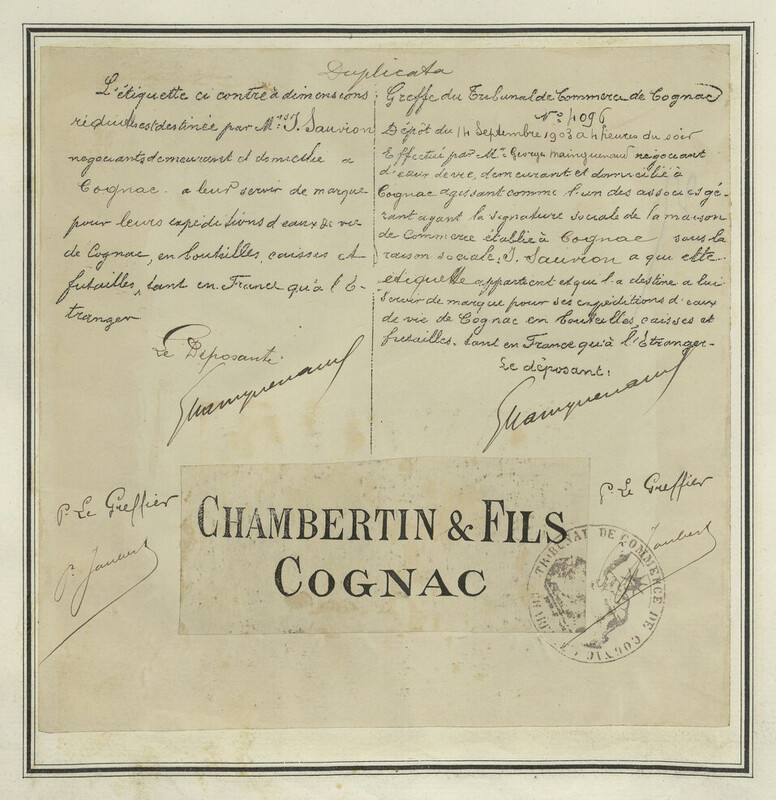 Duplicata
L'étiquette ci contre à dimensions
réduites est destinée par Mrs J. Sauvion
negociants demeurant et domicilié a
Cognac. a leur servir de marque
pour leurs expéditions d'eaux de vie
de Cognac, en bouteilles, caisses et
futailles, tant en France qu'à l'É-
tranger
Le Déposant:
Mainguenaud
Greffe du Tribunal de Commerce de Cognac
No 4096
Dépôt du 14 Septembre 1903 à 4 heures du soir
Effectué par Mr Georges Mainguenaud négociant
d'eaux de vie, demeurant et domicilié à
Cognac agissant comme l'un des associés gé-
rant ayant la signature sociale de la maison
de Commerce établie à Cognac sous la
raison sociale: J. Sauvion a qui cette
étiquette appartient et qui l'a destine a lui
servir de marque pour ses expéditions d'eaux
de vie de Cognac en bouteilles, caisses et
futailles, tant en France qu'à l'Étranger-
Le déposant:
Mainguenaud
P. Le Greffier
P. Le Greffier
Joubert
CHAMBERTIN & FILS
COGNAC
TRIBUNAL DE COMMERCE DE COGNAC